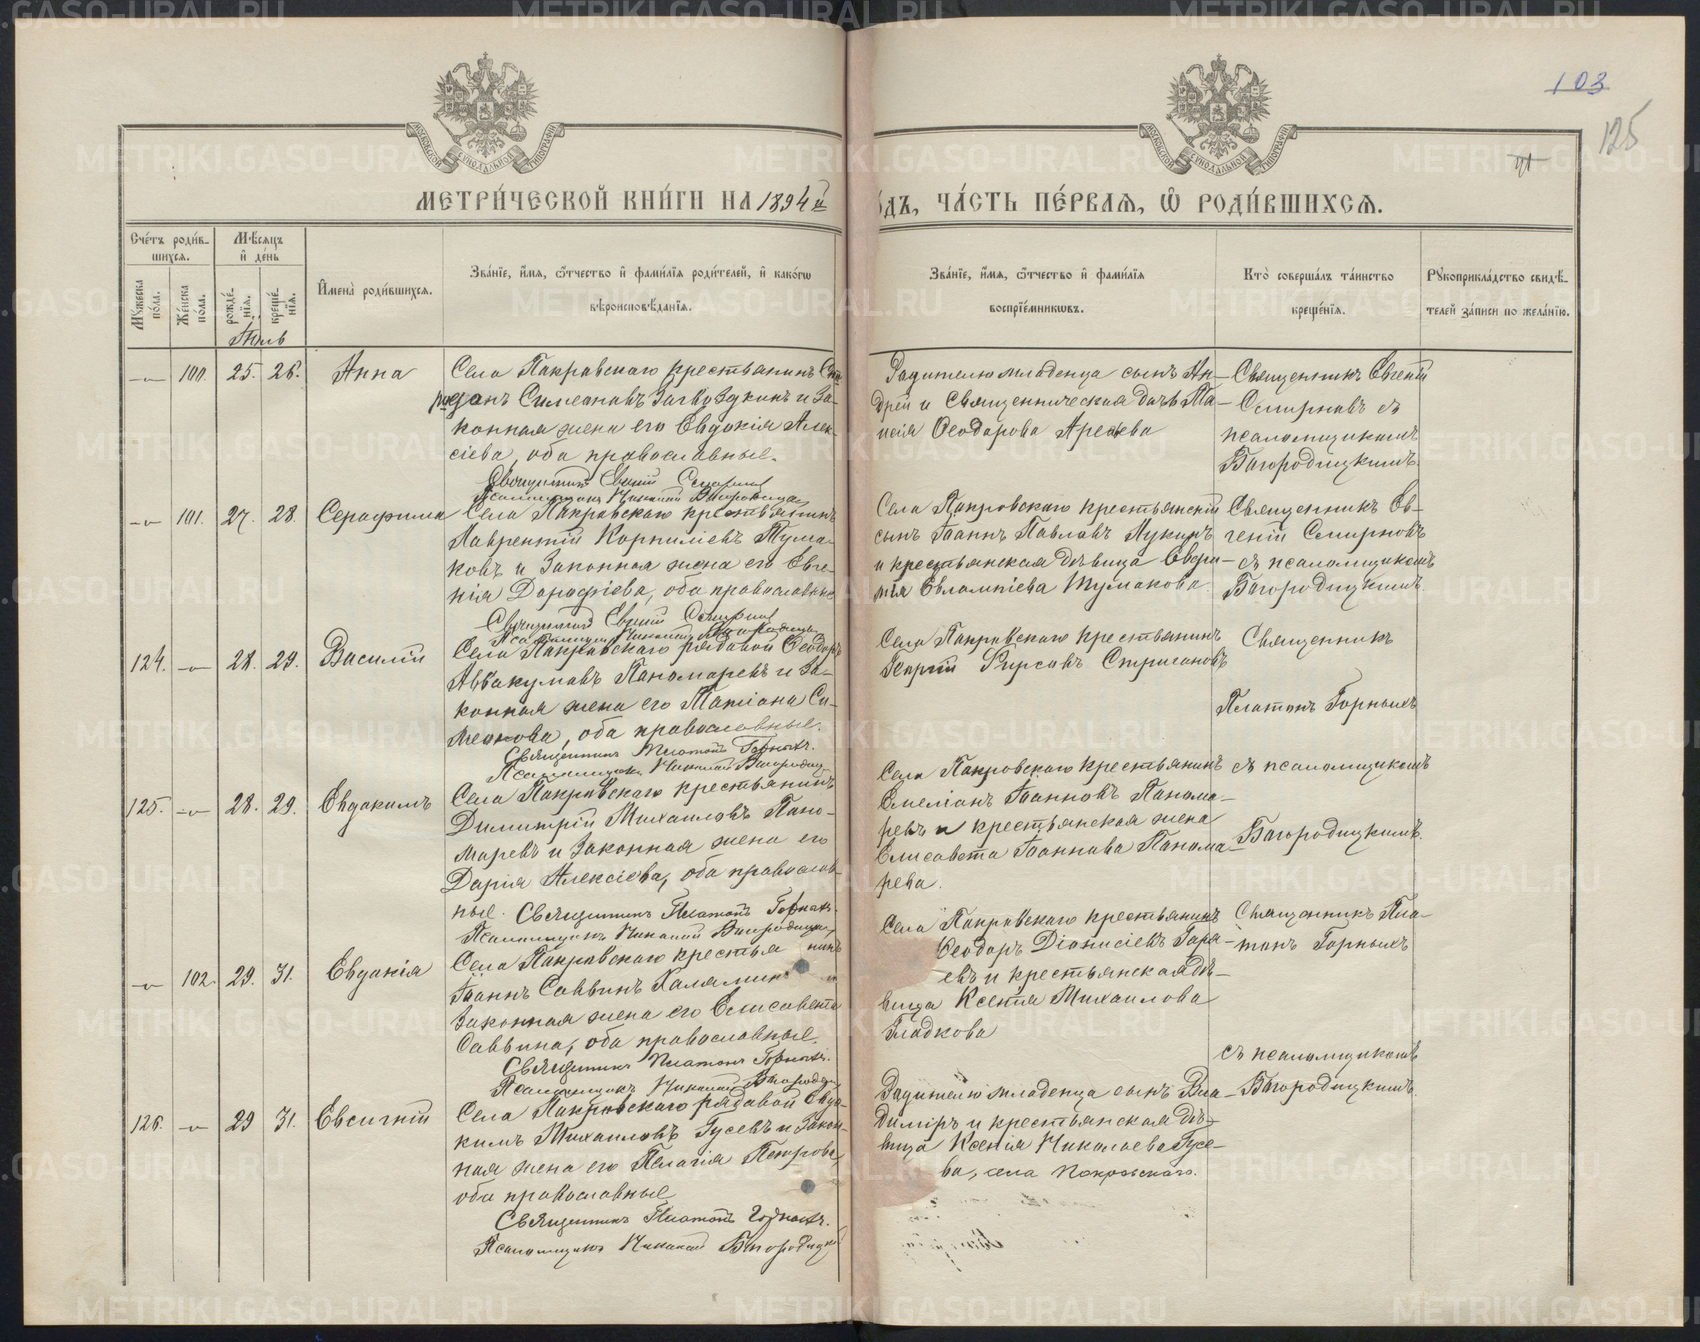 103
125
МОСКОВСКОЙ СѴНОДАЛЬНОЙ ТИПОГРАФІИ
МОСКОВСКОЙ СѴНОДАЛЬНОЙ ТИПОГРАФІИ
МЕТРИ́ЧЕСКОЙ КНИ́ГИ НА 1894й
ДЪ, ЧА́СТЬ ПЕ́РВАЯ, Ѡ РОДИ́ВШИХСЯ.
Сче́тъ роди́в-
шихся.
Мѣ́сяцъ
и҆ де́нь
Мꙋ́жеска по́ла.
Же́нска по́ла.
рожде́нїѧ.
креще́нїѧ.
И҆мена̀ роди́вшихсѧ.
Зва́нїе, и҆́мѧ, ѻ҆́тчество и҆ фами́лїѧ роди́телей, и҆ како́гѡ
вѣроисповѣ́данїѧ.
Зва́нїе, и҆́мѧ, ѻ҆́тчество и҆ фами́лїѧ
воспрїе́мникѡвъ.
Кто̀ соверша́лъ та́инство
креще́нїѧ.
Рꙋкоприкла́дство свидѣ́-
телей за́писи по жела́нїю.
Іюль
100. 25. 26. Анна
Села Покровскаго крестьянинъ
Симеоновъ Загвоздкинъ и За-
конная жена его Евдокія Алек-
сіева, оба православные.
Священникъ Евгеній Смирновъ
Псаломщикъ Николай Богородицкій
Родителю младенца сынъ Ан-
дрей и Священническая дочь Та-
исія Ѳеодорова
Священникъ Евгеній
Смирновъ съ
псаломщикомъ
Богородицкимъ.
101. 27. 28. Серафима
Села Покровскаго крестьянинъ
Лаврентій Корниліевъ Тума-
ковъ и Законная жена его Евге-
нія Дороѳіева, оба православные
Священникъ Евгеній Смирновъ
Псаломщикъ Николай Богородицкій
Села Покровскаго крестьянскій
сынъ Іоаннъ Павловъ Лукинъ
и крестьянская дѣвица Евѳи-
мія Евлампіева Тумакова
Священникъ Ев-
геній Смирновъ
съ псаломщикомъ
Богородицкимъ.
124. 28. 29. Василій
Села Покровскаго рядовой Ѳеодоръ
Аввакумовъ Пономаревъ и За-
конная жена его Татіана Си-
меонова, оба православные.
Священникъ Платонъ Горныхъ.
Псаломщикъ Николай Богородицкій
Села Покровскаго крестьянинъ
Георгій Ѳирсовъ Стригановъ
Священникъ
Платонъ Горныхъ
125. 28. 29. Евдокимъ
Села Покровскаго крестьянинъ
Димитрій Михаиловъ Поно-
маревъ и Законная жена его
Дарія Алексіева, оба православ-
ные. Священникъ Платонъ Горныхъ.
Псаломщикъ Николай Богородицкій
Села Покровскаго крестьянинъ
Емеліанъ Іоанновъ Понома-
ревъ и крестьянская жена
Елисавета Іоаннова Понома-
рева.
съ псаломщикомъ
Богородицкимъ.
102. 29. 31. Евдокія
Села Покровскаго крестьянинъ
Іоаннъ Саввинъ Халяминъ и
Законная жена его Елисавета
Саввина, оба православные.
Священникъ Платонъ Горныхъ.
Псаломщикъ Николай Богородицкій
Села Покровскаго крестьянинъ
Ѳеодоръ Діонисіевъ Горя-
евъ и крестьянская дѣ-
вица Ксенія Михаилова
Гладкова
Священникъ Пла-
тонъ Горныхъ
съ псаломщикомъ
Богородицкимъ.
126. 29 31. Евсигній
Села Покровскаго рядовой Евдо-
кимъ Михаиловъ Гусевъ и Закон-
ная жена его Пелагія Петрова,
оба православные
Священникъ Платонъ Горныхъ.
Псаломщикъ Николай Богородицкій
Родителю младенца сынъ Вла-
димиръ и крестьянская дѣ-
вица Ксенія Николаева Гусе-
ва, села Покровскаго.
METRIKI.GASO-URAL.RU